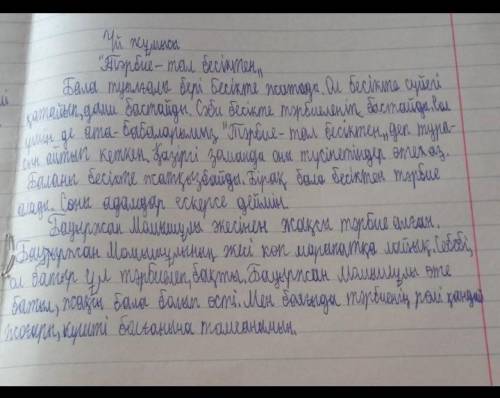 Үй жұмысы
"Тәрбие - тал бесіктен"
Бала туылғалы бері бесікте жатады. Ол бесікте сүйегі
қатайып, дами бастайды. Сәби бесікте тәрбиелене бастайды. Сол
үшін де ата-бабаларымыз "Тәрбие - тал бесіктен" деп тұра-
сын айтып кеткен. Қазіргі заманда оны түсінетіндер өте аз.
Баланы бесікке жатқызбайды. Бірақ бала бесіктен тәрбие
алады. Соны адамдар ескерсе деймін.
Бауыржан Момышұлы әжесінен жақсы тәрбие алған.
Бауыржан Момышұлының әжесі көп марапатқа лайық. Себебі,
ол батыр ұл тәрбиелеп бақты. Бауыржан Момышұлы өте
батыл, жақсы бала болып өсті. Мен баяғыда тәрбиенің рөлі қандай
жоғары, күшті болғанына таңғанамын.